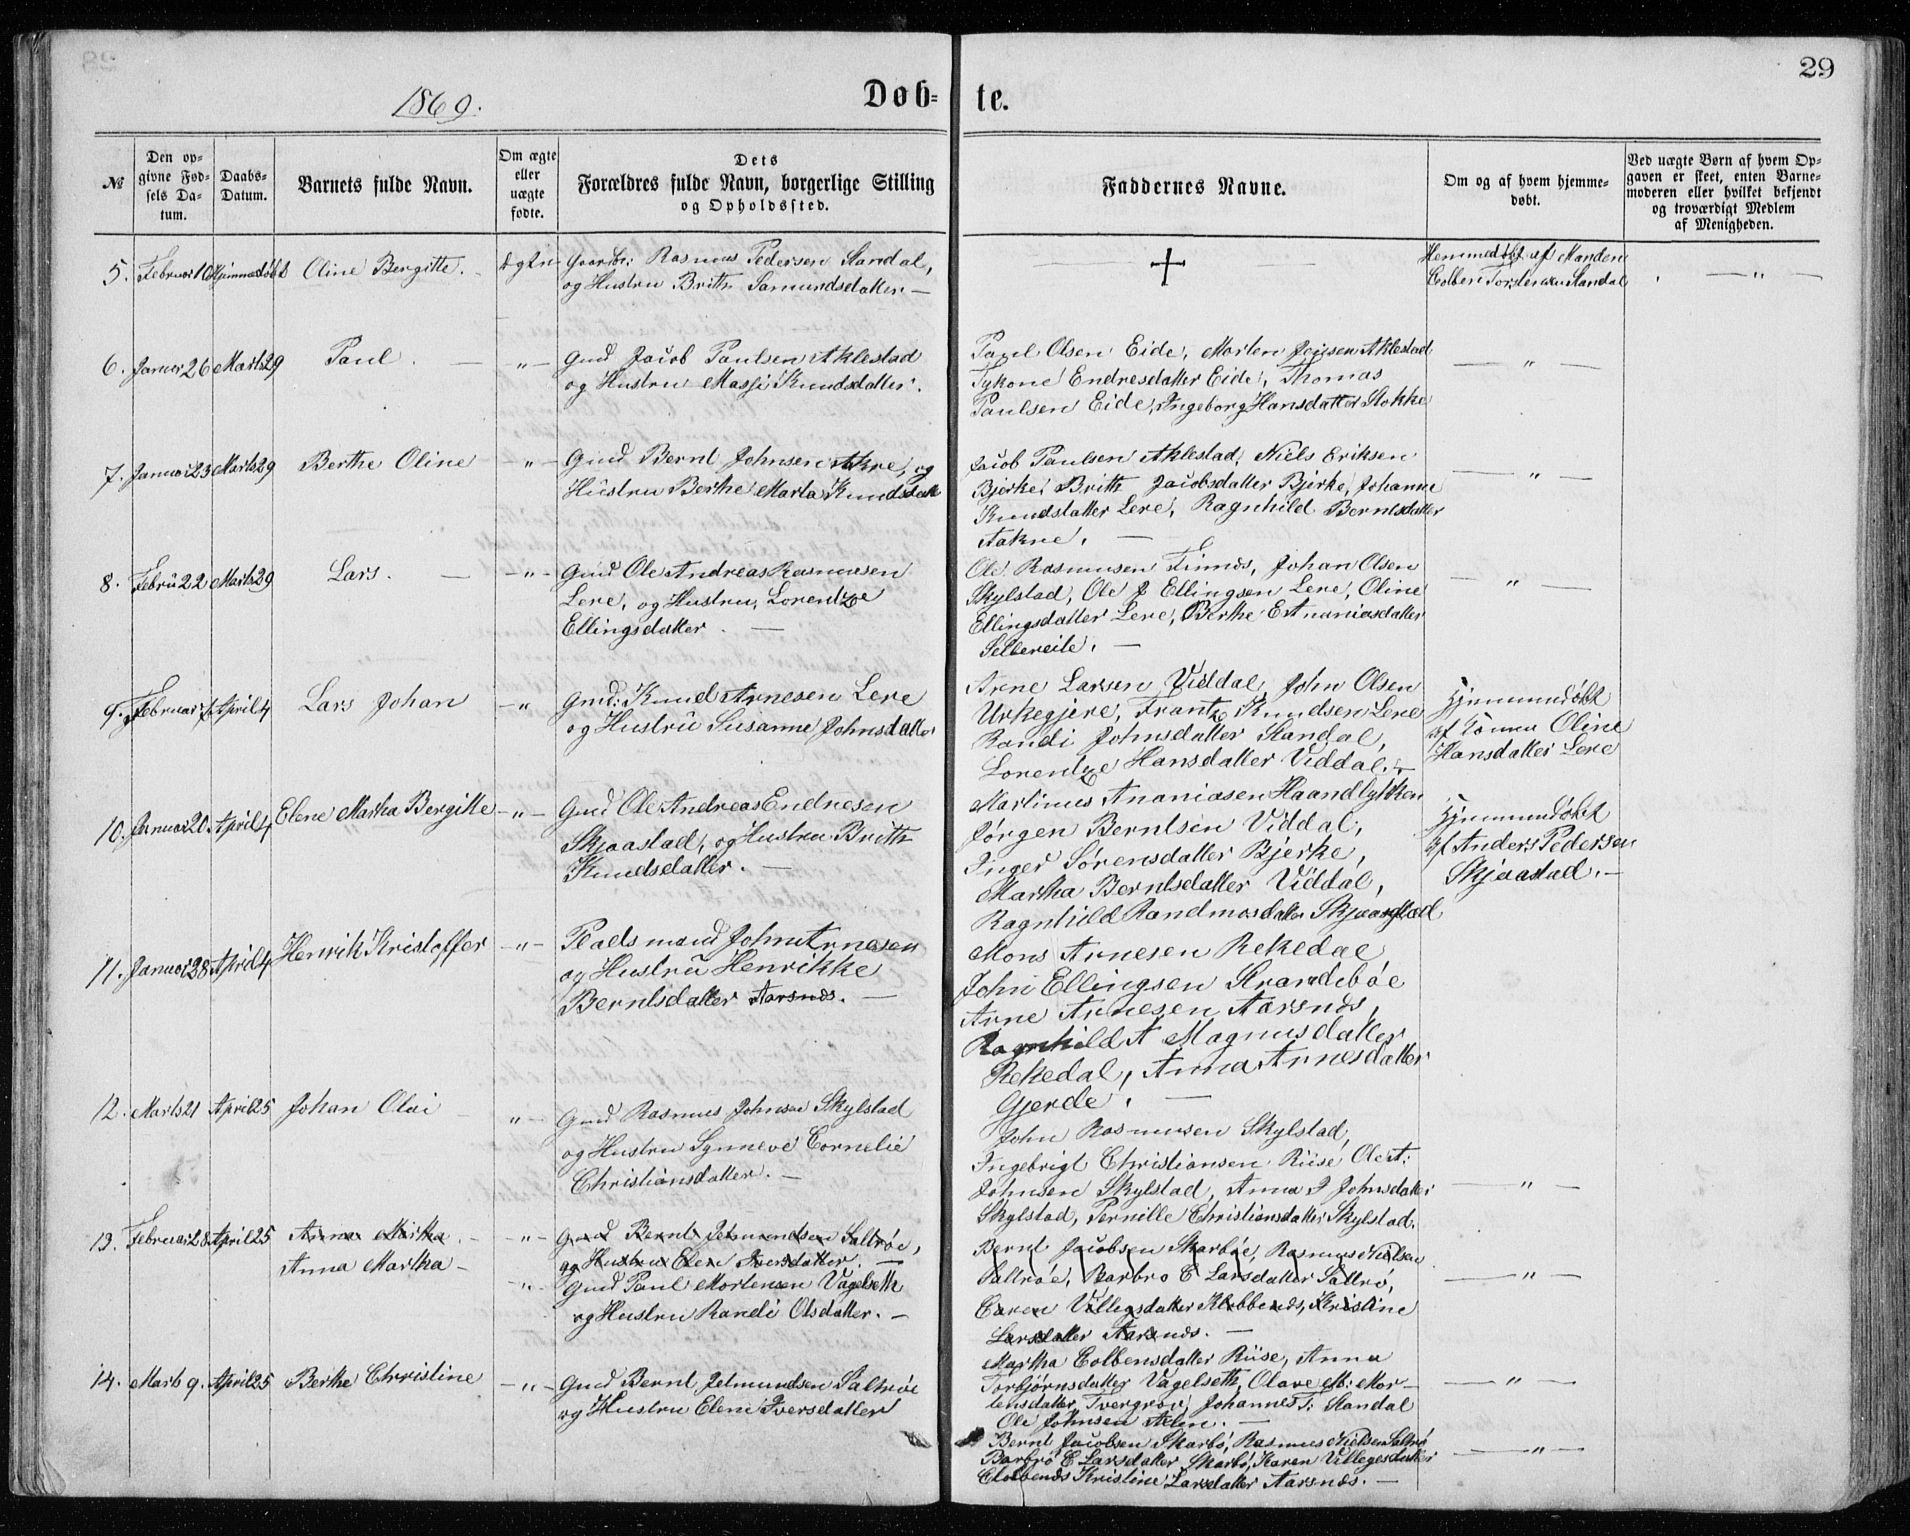 29
1869.
Døb-
te.
№
Den op-
givne Fød-
sels Da-
tum.
Daabs-
Datum.
Barnets fulde Navn.
Om ægte
eller
uægte
fødte.
Dets
Forældres fulde Navn, borgerlige Stilling
og Opholdssted.
Faddernes Navne.
Om og af hvem hjemme-
døbt.
Ved uægte Børn af hvem Op-
gaven er skeet, enten Barne-
moderen eller hvilket bekjendt
og troværdigt Medlem
af Menigheden.
5. Februar 10 Hjemmedøbt Oline Bergitte. Ægte Gaardbr: Rasmus Pedersen Standal,
og Hustru Brithe Samundsdatter —
+
Hemmedøbt af Manden
Colben Torstensen Standal
— " —
6. Januar 26 Marts 29 Paul. — " — Gmd Jacob Paulsen Aklestad
og Hustru Massi Knudsdatter.
Paul Olsen Eide, Morten Jensen Aklestad
Tykone Endresdatter Eide, Thomas
Paulsen Eide, Ingeborg Hansdatter Stokke
— " —
7. Januar 23 Marts 29 Berthe Oline " — Gmd Bernt Johnsen Akre, og
Hustru Berthe Marta Knudsdatt
Jacob Paulsen Aklestad, Niels Eriksen
Bjerke, Brith Jacobsdatter Bjerke, Johanne
Knudsdatter Lere, Ragnhild Berntsdatter
Aakre. —
— " —
8. Febru 22 Marts 29 Lars. — — " — Gmd Ole Andreas Rasmusen
Lere, og Hustru, Lorentze
Ellingsdatter. —
Ole Rasmusen Finnes, Johan Olsen
Skylstad, Ole J Ellingsen Lere, Oline
Ellingsdatter Lere, Berthe E Ananiasdatter
Sellereite. —
— " —
9. Februar April 4 Lars Johan — " Gmd: Knud Arnesen Lere
og Hustru Susanne Johnsdatter
Arne Larsen Viddal, John Olsen
Urkegjere, Frantz Knudsen Lere
Randi Johnsdatter Standal,
Lorentze Hansdatter Viddal. —
Hjemmedøbt
af Konen Oline
Hansdatter Lere
10. Januar 20 April 4 Elene Martha Bergitte — " — Gmd Ole Andreas Endresen
Skjaastad, og Hustru Brith
Knudsdatter. —
Martinus Ananiasen Haandlykken
Jørgen Berntsen Viddal,
Inger Sørensdatter Bjerke,
Martha Berntsdatter Viddal,
Ragnhild Randmosdatter Skjaastad
Hjemmedøbt
af Anders Pedersen
Skjaastad. —
11. Januar 28 April 4 Henrik Kristoffer — " — Pladsmand John Arnesen
og Hustru Henrikke
Berntsdatter Aarsnes. —
Mons Arnesen Rekedal
John Ellingsen Strandebøe
Arne Arnesen Aarsnes,
Ragnhild A Magnusdatter
Rekedal, Anna Arnesdatter
Gjerde. —
12. Marts 21 April 25 Johan Olai — " — Gmd Rasmus Johnsen Skylstad
og Hustru Synneve Cornelie
Christiansdatter. —
John Rasmusen Skylstad,
Ingebrigt Christiansen Riise, Ole A:
Johnsen Skylstad, Anna J Johnsdatter
Skylstad, Pernille Christiansdatter Skylstad.
— " —
13. Februar 28 April 25 Anna Martha. — " — Gmd Bernt Jetmundsen Saltrøe,
og Hustru Elen Iversdatter. —
Anna Martha — " — Gmd Paul Mortensen Vagelseth
og Hustru Randi Olsdatter. —
Bernt Jacobsen Skarbøe, Rasmus Nielsen
Saltrøe, Barbro E Larsdatter Saltrø,
Caren Villegsdatter Klobbenes, Kristine
Larsdatter Aarsnes. —
Martha Colbensdatter Riise, Anna
Torbjørnsdatter Vagelseth, Olave M: Mor-
tensdatter Tvergrov, Johannes T: Standal
Ole Johnsen Aklen. —
— " —
14. Marts 9. April 25 Berthe Christine — " — Gmd Bernt Jetmundsen Saltrøe
og Hustru Elene Iversdatter
— " —
Bernt Jacobsen Skarbø, Rasmus Nielsen Saltrø
Barbrø E Larsdatter Skarbø, Karen Villegsdatter
Clobbenes Kristine Larsdatter Aarsnes. —
— " —